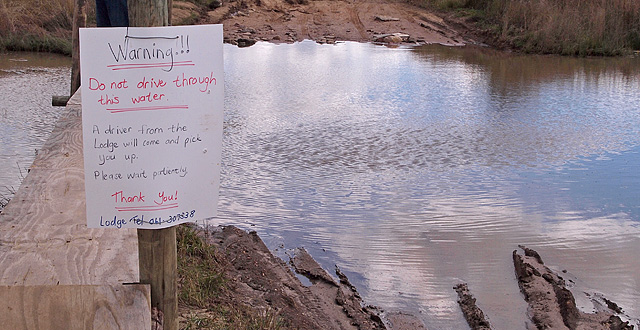 Warning!!
Do not drive through
this water.
A driver from the
Lodge will come and pick
you up.
Please wait patiently.
Thank You!
Lodge Tel